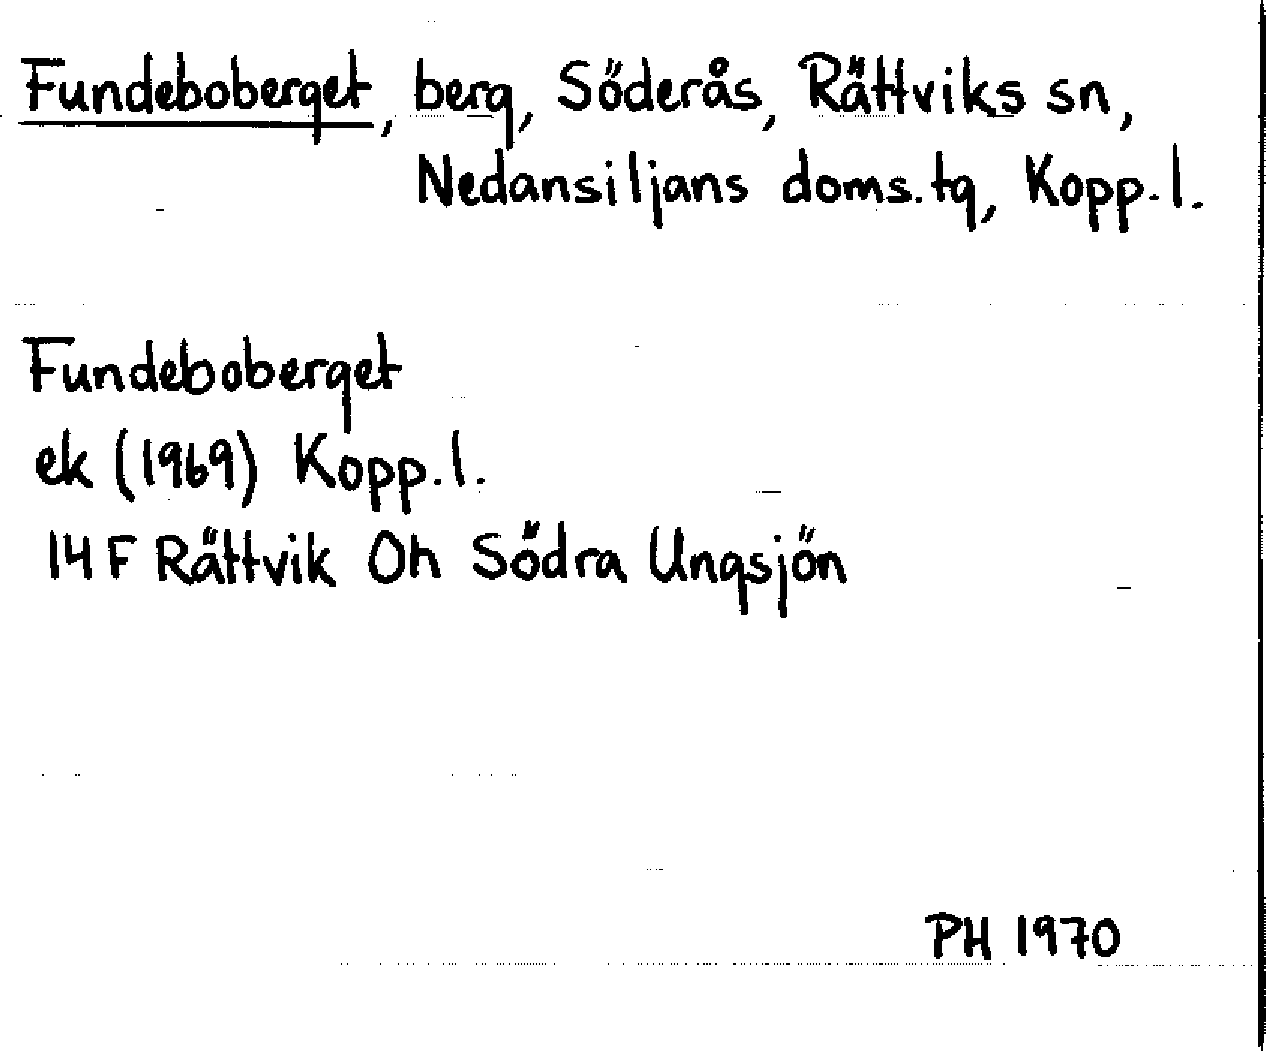 Fundeboberget, berg, Söderås, Rättviks sn,
Nedansiljans doms. tg, Kopp. l.
Fundeboberget
ek (1969) Kopp. l.
14 F Rättvik 0h Södra Ungsjön
PH 1970